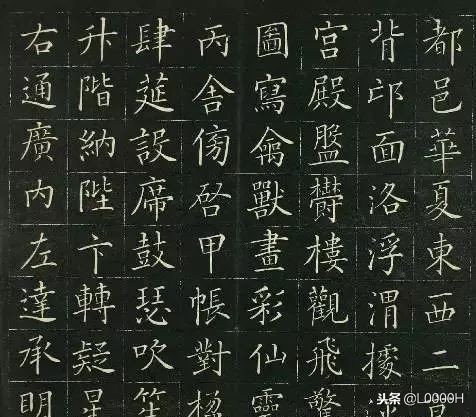 都邑華夏東西二
背邙面洛浮渭據
宮殿盤鬱樓觀飛驚
圖寫禽獸畫彩仙靈
丙舍傍啓甲帳對楹
肆筵設席鼓瑟吹笙
升階納陛卞轉疑星
右通廣內左達承明
头条 @L0000H